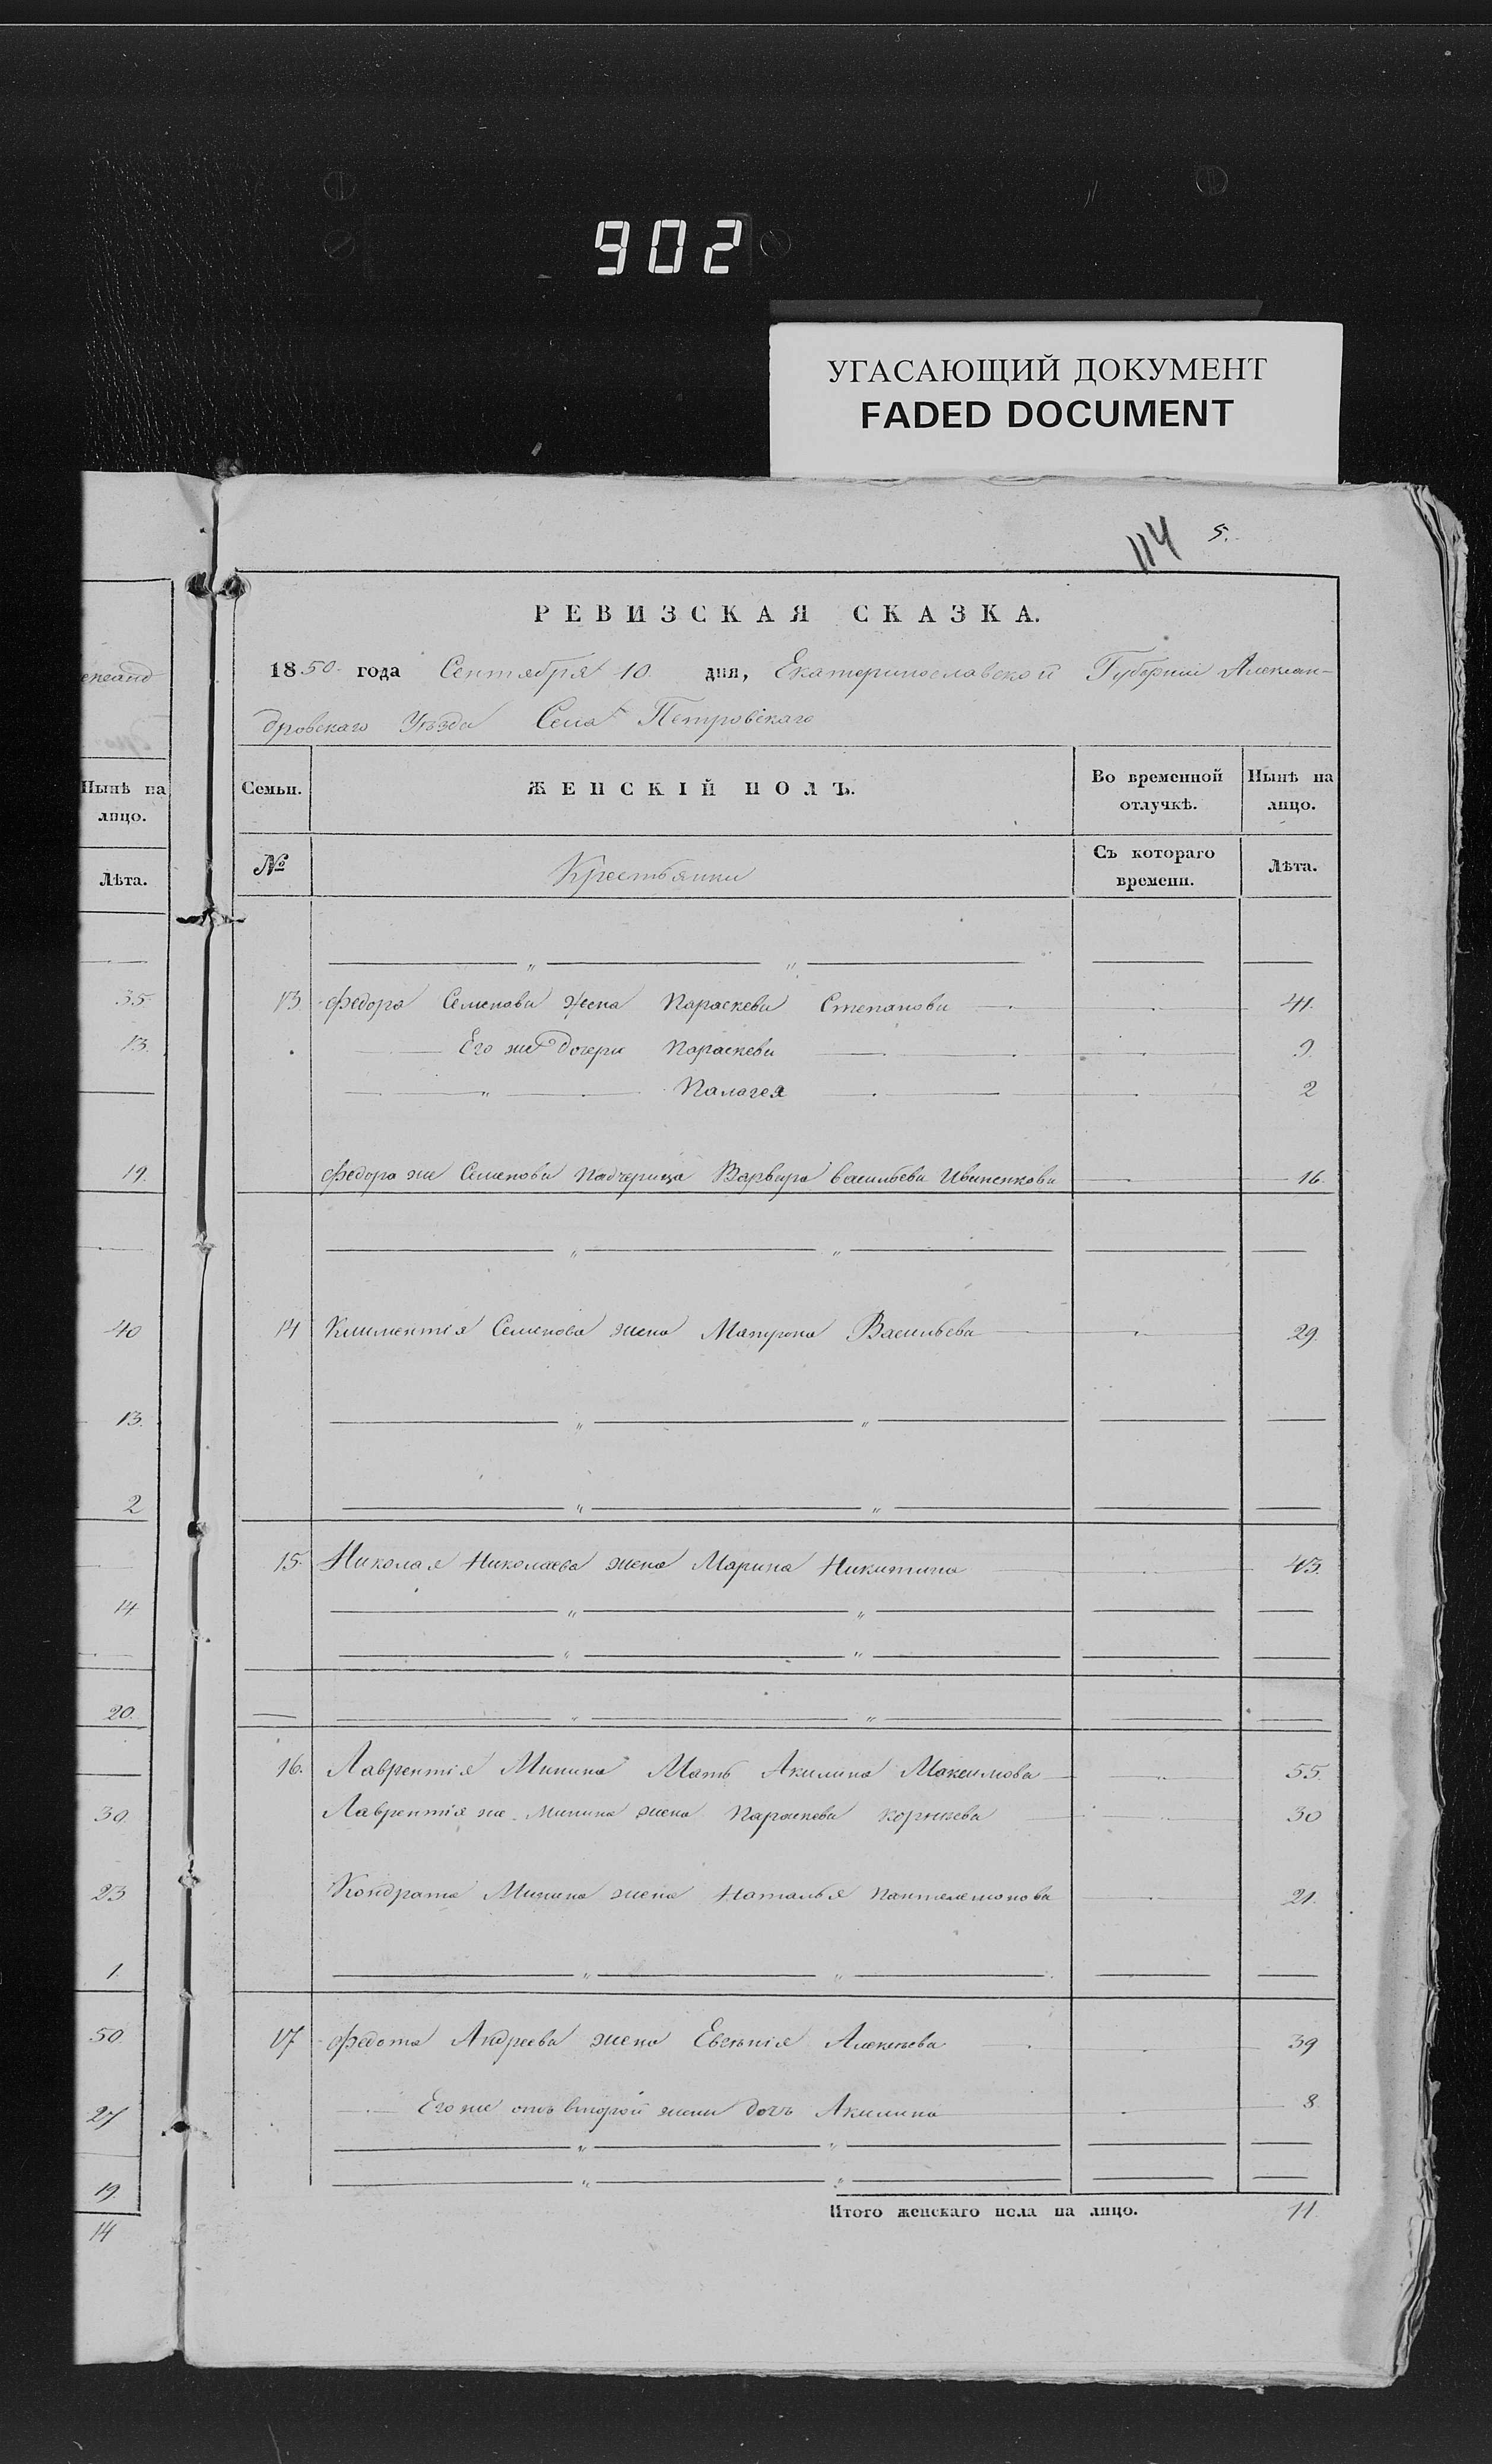 902
УГАСАЮЩИЙ ДОКУМЕНТ
FADED DOCUMENT
114 5.
РЕВИЗСКАЯ СКАЗКА.
1850 года Сентября 10. дня, Екатеринославской Губернии Алексан-
дровскаго Уѣзда Села Петровскаго
Нынѣ на
лицо.
Лѣта.
35
13.
19.
40
13.
2
14
20.
30.
23
1.
50.
27
19.
14
Семьи.
ЖЕНСКІЙ ПОЛЪ.
Во временной
отлучкѣ.
Нынѣ на
лицо.
№
Крестьянки
Съ котораго
времени.
Лѣта.
13 Федора Семенова жена Параскева Степанова 41.
Его же дочери Параскева 9.
" Палагея 2
Федора же Семенова падчерица Варвара Васильева Иваненкова 16.
14 Климентія Семенова жена Матрона Васильева 29.
15. Николая Николаева жена Марина Никитина 43.
16. Лаврентія Минина Мать Акилина Максимова 55.
Лаврентія же Минина жена Параскева Корнѣева 30
Кондрата Минина жена Наталья Пантелемонова 21.
17 Федота Андреева жена Евгенія Алексѣева 39
Его же отъ второй жены дочь Акилина 8.
Итого женскаго пола на лицо. 11.